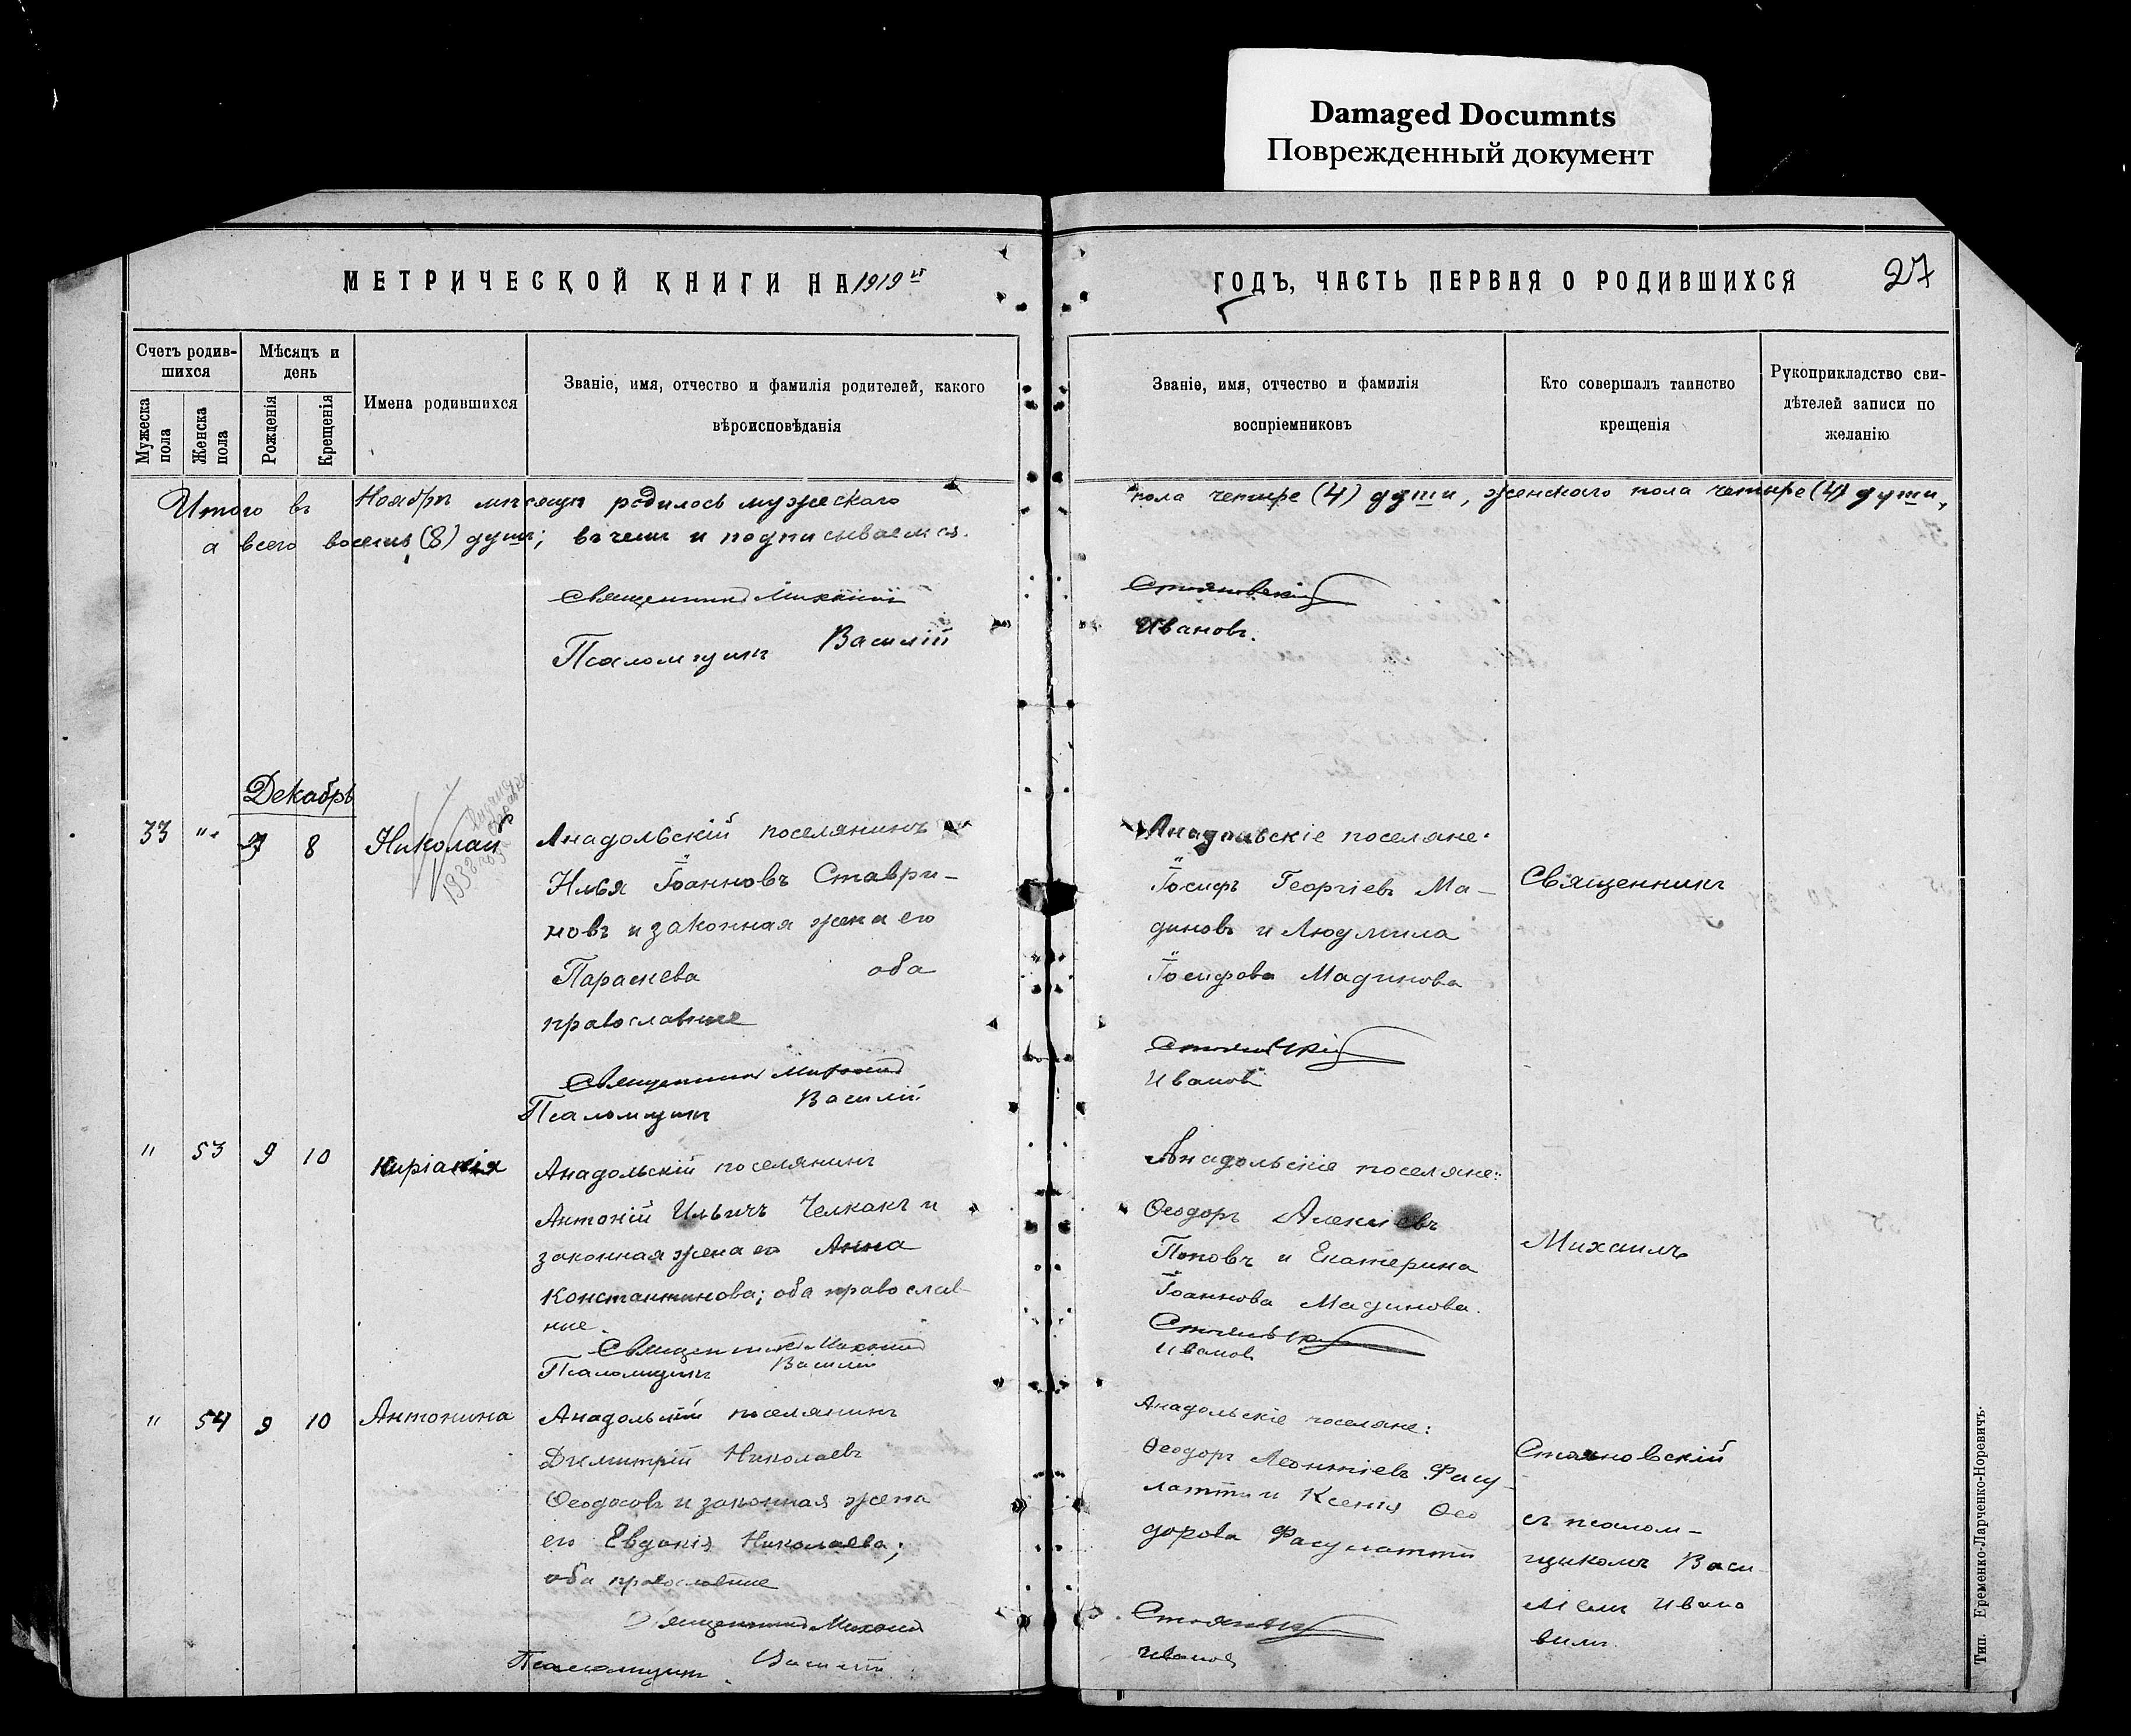 Damaged Documnts
Поврежденный документ
МЕТРИЧЕСКОЙ КНИГИ НА 1919й
ГОДЪ, ЧАСТЬ ПЕРВАЯ О РОДИВШИХСЯ
27
Счетъ родив-
шихся
Мѣсяцъ и
день
Мужеска
пола
Женска
пола
Рожденія
Крещенія
Имена родившихся
Званіе, имя, отчество и фамилія родителей, какого
вѣроисповѣданія
Званіе, имя, отчество и фамилія
воспріемниковъ
Кто совершалъ таинство
крещенія
Рукоприкладство сви-
дѣтелей записи по
желанію
Итого въ Ноябрѣ мѣсяцѣ родилось мужескаго
пола четыре (4) души, женскаго пола четыре (4) души,
а всего восемь (8) душъ; въ чемъ и подписываемся.
Священникъ Михаилъ
Стояновскій
Псаломщикъ Василій
Ивановъ.
Декабрь
33 " 7 8 Николай
1932
Анадольскій поселянинъ
Илья Іоанновъ Ставри-
новъ и законная жена его
Параскева оба
православные
Священникъ Михаилъ
Псаломщикъ Василій
Анадольскіе поселяне:
Іосифъ Георгіевъ Ма-
диновъ и Людмила
Іосифова Мадинова
Стояновскій
Ивановъ
Священникъ
" 53 9 10 Киріакія
Анадольскій поселянинъ
Антоній Ильичъ Челкакъ и
законная жена его Анна
Константинова; оба православ-
ные.
Священникъ Михаилъ
Псаломщикъ Василій
Анадольскіе поселяне:
Ѳеодоръ Алексіевъ
Поповъ и Екатерина
Іоаннова Мадинова.
Стояновскій
Ивановъ
Михаилъ
" 54 9 10 Антонина
Анадольскій поселянинъ
Димитрій Николаевъ
Ѳеодосовъ и законная жена
его Евдокія Николаева;
оба православные
Священникъ Михаилъ
Псаломщикъ Василій
Анадольскіе поселяне:
Ѳеодоръ Леонтіевъ Фасу-
латти и Ксенія Ѳео
дорова Фасулатти
Стояновскій
Ивановъ
Стояновскій
съ псалом-
щикомъ Васи-
ліемъ Ивано
вымъ.
Тип. Еременко-Ларченко-Норевичъ.